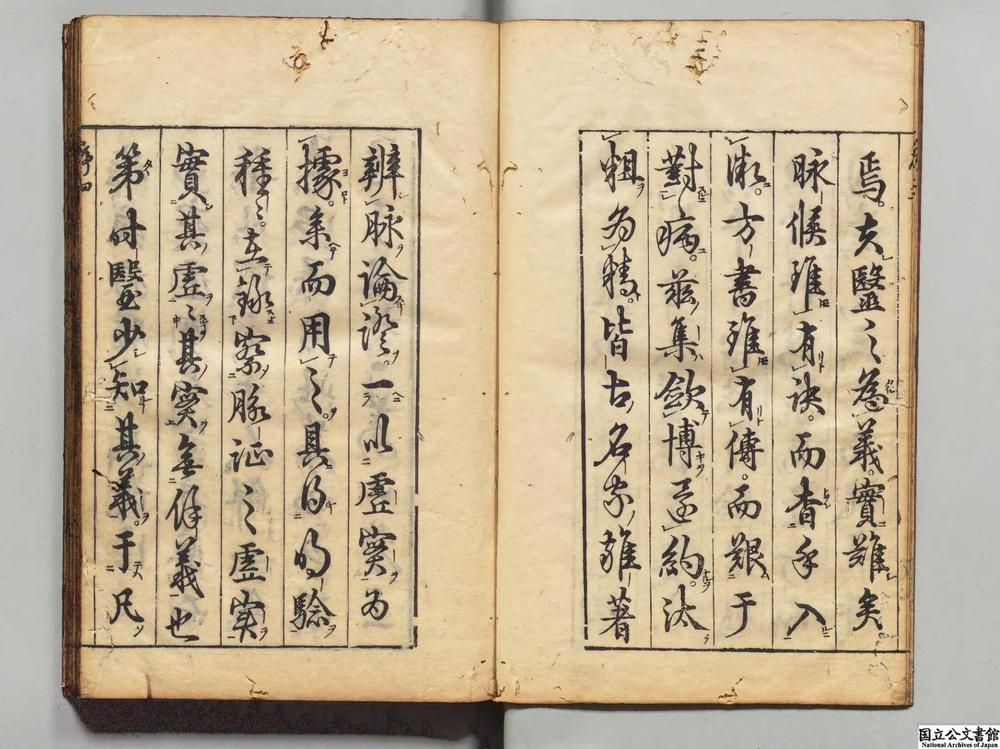 焉夫醫之為義實難矣
脉候雖有訣而杳乎入
微方書雖有傳而艱于
對病茲集斂博還約汰
粗為精皆古名家雖著
辨脉論證一以虛實為
據条而用之具得明驗
種之在錄察脉証之虛实
實其虛之其實無餘義也
第時醫少知其義于凡
序四
国立公文書館
National Archives of Japan